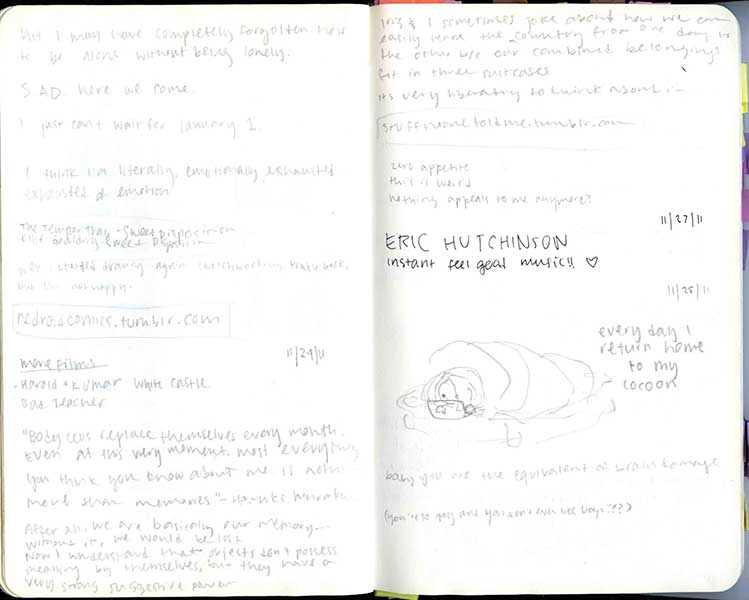 but I must have completely forgotten how
to be alone without being lonely.
SAD. here we come.
I just can't wait for January 1.
I think I'm literally, emotionally, exhausted
exhausted of emotion
The Temper Trap - Sweet Disposition
Sweet Disposition
started drawing again.
but I'm not happy.
nedroidcomics.tumblr.com
11/24/11
more films
- Harold + Kumar White Castle
Bad Teacher
"Body cells replace themselves every month.
Even at this very moment. most everything
you think you know about me is nothing
more than memories" - Haruki Murakami
After all, we are basically our memory -
without it, we would be lost
Now I understand that objects don't possess
meaning by themselves, but they have a
very strong suggestive power
Iris & I sometimes joke about how we can
easily leave the country from one day to
the other b/c our combined belongings
fit in three suitcases
its very liberating to think about.
stuffnoonetoldme.tumblr.com
zero appetite
this is weird
nothing appeals to me anymore?
11/27/11
ERIC HUTCHINSON
instant feel good music!! ♡
11/28/11
every day I
return home
to my
cocoon
baby you are the equivalent of brain damage
(you're so gay and you don't even like boys???)